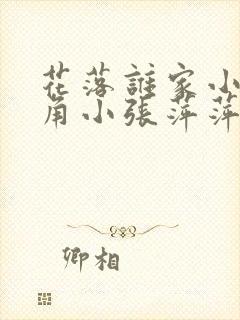 花落誰家小
角小張萍萍
卿相